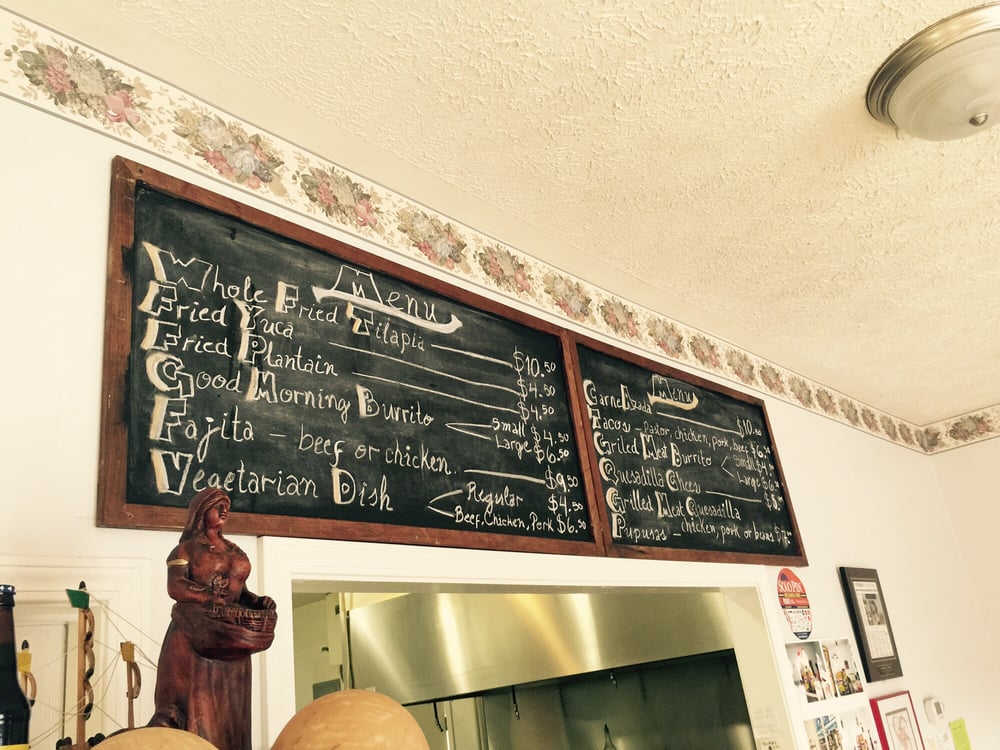 Menu
Whole Fried Tilapia $10.50
Fried Yuca $4.50
Fried Plantain $4.50
Good Morning Burrito Small $4.50
Large $6.50
Fajita - beef or chicken $9.50
Vegetarian Dish Regular $4.50
Beef, Chicken, Pork $6.50
Menu
Carne Asada $10.50
Tacos - Pastor, chicken, pork, beef
Grilled Meat Burrito Small
Large
Quesadilla Chees
Grilled Meat Quesadilla
chicken, pork or
Pupusas